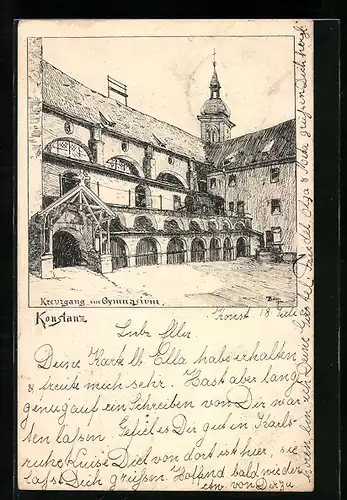 Kreuzgang im Gymnasium.
Konstanz
Konst. 18 Juli
Liebe Ella.
Deine Karte lb Ella habe erhalten
& freute mich sehr. Hast aber lang
genug auf ein Schreiben von Dir war
ten lassen. Gefällt es Dir gut in Karls-
ruhe Luise Diel von dort ist hier, sie
läßt Dich grüßen. Hoffend bald wieder
etw. von Dir zu
hören, bin ich Deine Olga & grüßen Dich herzl.